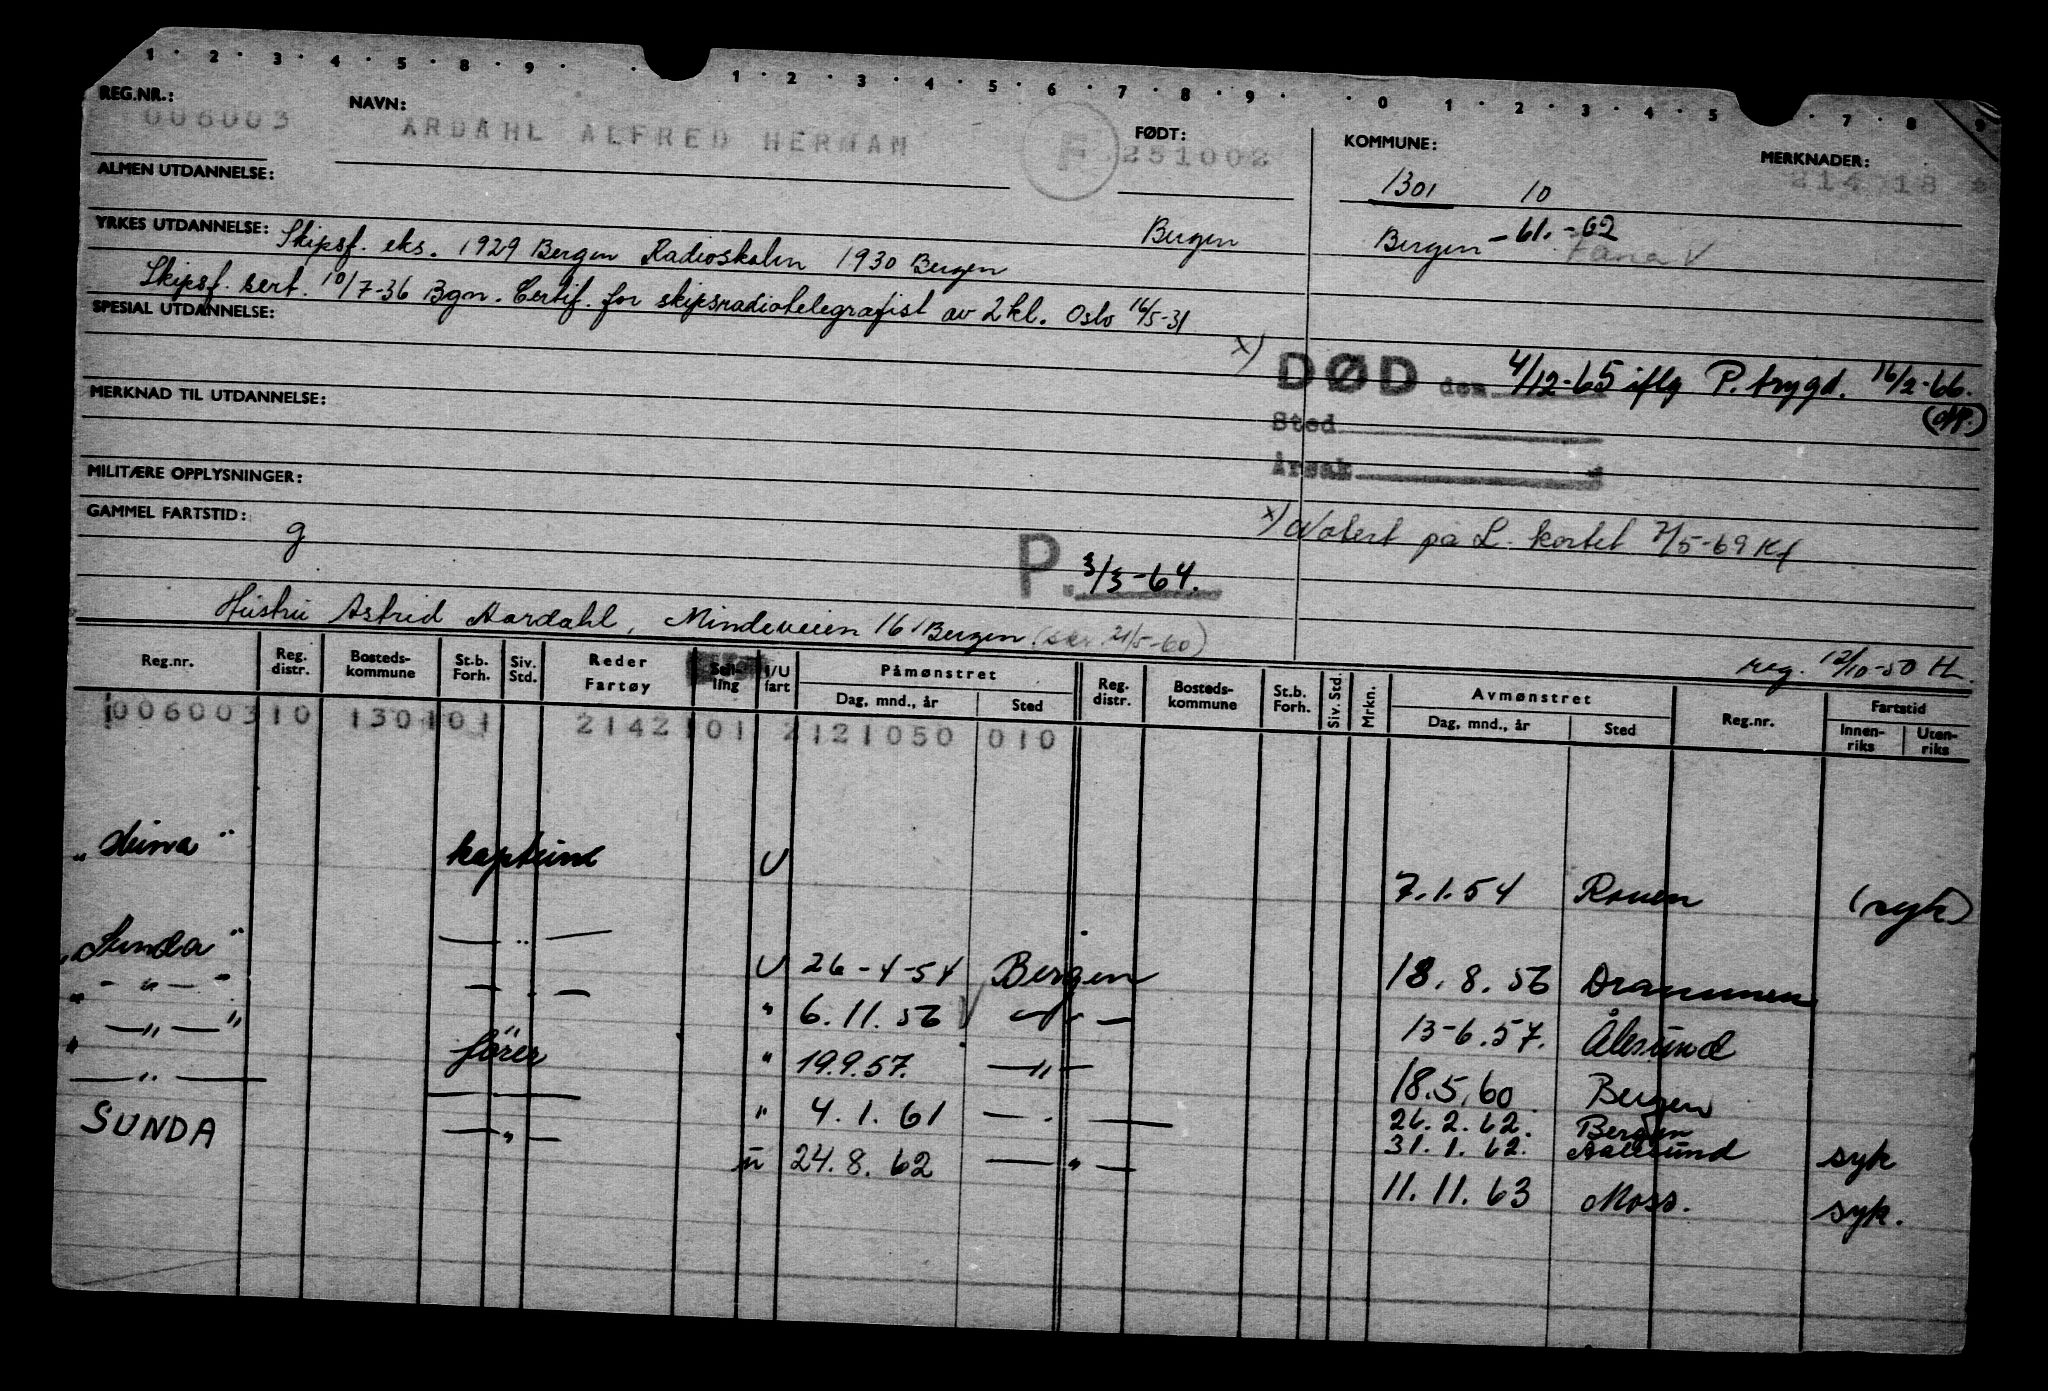 1 · 2 · 3 · 4 · 5 · 8 · 9 · · 1 · 2 · 3 · 4 · 5 · 6 · 7 · 8 · 9 · · 0 1 · 2 · 3 · 4 · 5 · 7 · 8 9
REG.NR.: NAVN: FØDT: KOMMUNE: MERKNADER:
006003 ARDAHL ALFRED HERMAN F. 251002 214 18
1301 10
ALMEN UTDANNELSE:
Bergen Bergen -61.-62 Fana V
YRKES UTDANNELSE: Skipsf. eks. 1929 Bergen Radioskolen 1930 Bergen
Skipsf. sert. 10/7-36 Bgn. Certif. for skipsradiotelegrafist av 2 kl. Oslo 16/5-31
SPESIAL UTDANNELSE:
x) DØD den 4/12-65 iflg P. trygd. 16/2-66.
MERKNAD TIL UTDANNELSE:
Sted
Årsak
MILITÆRE OPPLYSNINGER:
GAMMEL FARTSTID: g
x) Notert på L. kortet 7/5-69 Kf
P. 3/3-64.
Hustru Astrid Aardahl, Mindeveien 16, Bergen. (skr. 21/5-60)
reg. 12/10-50 H.
Reg.nr. Reg. distr. Bosteds-kommune St.b. Forh. Siv. Std. Reder Fartøy Stil-ling I/U fart Påmønstret Dag, mnd., år Sted Reg. distr. Bosteds-kommune St.b. Forh. Siv. Std. Mrkn. Avmønstret Dag, mnd., år Sted Reg.nr. Fartstid Innen-riks Uten-riks
006003 10 1301 01 2142 101 2121050 010
kaptein U 7.1.54 Rouen (syk)
"Sunda" — " — U 26-4-54 Bergen 18.8.56 Drammen
" — " — " — " — " 6.11.56 V — " — 13-6.57. Ålesund
" — " — " fører " 19.9.57. — " — 18.5.60 Bergen
— " — — " 4.1.61 — " — 26.2.62. Bergen
31.1.62. Aalesund syk
SUNDA — " — u 24.8.62 — " — 11.11.63 Moss. syk.